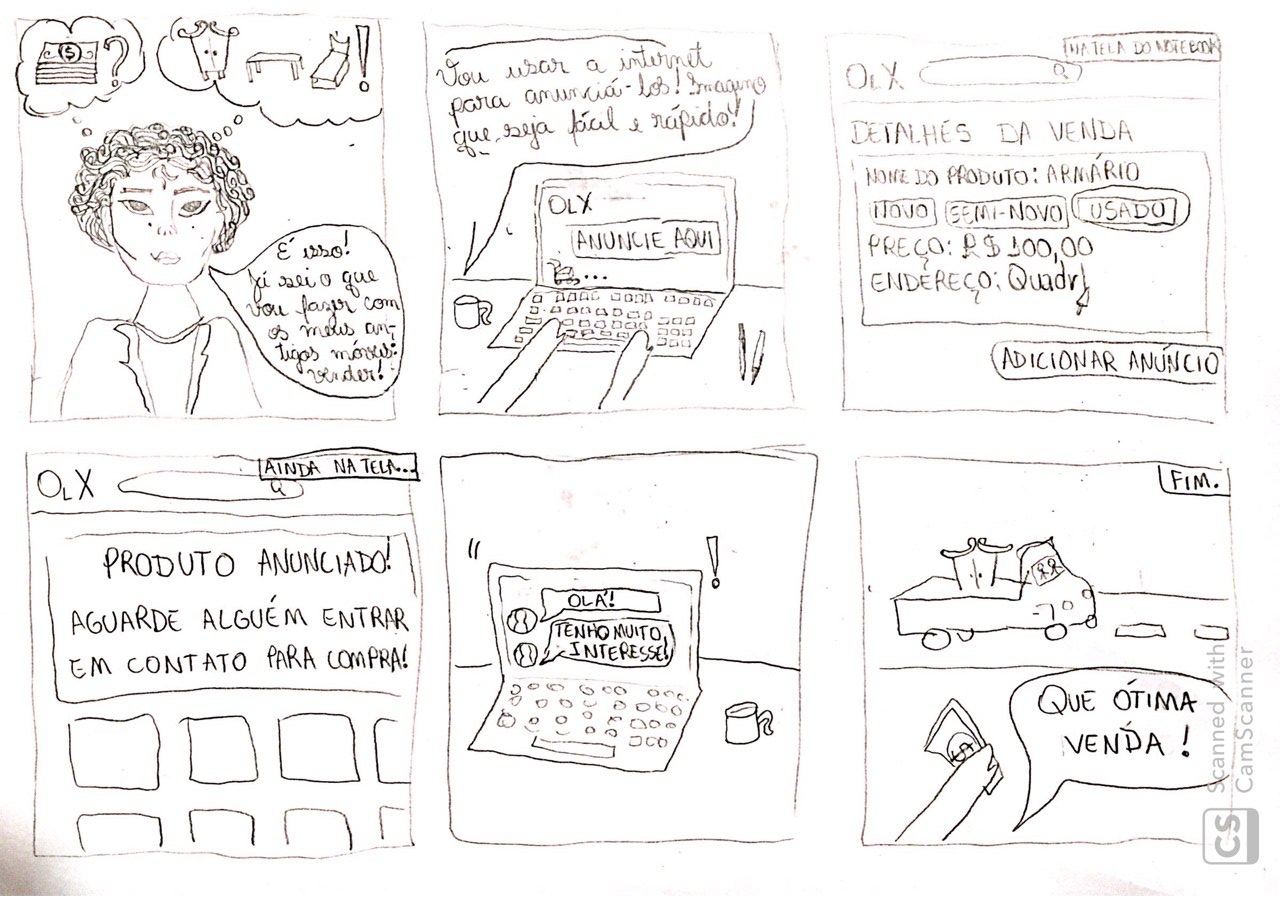 $ ? !
É isso!
Já sei o que
vou fazer com
os meus an-
tigos móveis:
vender!
Vou usar a internet
para anunciá-los! Imagino
que seja fácil e rápido!
OLX
ANUNCIE AQUI
...
NA TELA DO NOTEBOOK
OLX
DETALHES DA VENDA
NOME DO PRODUTO: ARMÁRIO
NOVO SEMI-NOVO USADO
PREÇO: R$ 100,00
ENDEREÇO: Quadr
ADICIONAR ANÚNCIO
AINDA NA TELA...
OLX
PRODUTO ANUNCIADO!
AGUARDE ALGUÉM ENTRAR
EM CONTATO PARA COMPRA!
!
OLÁ!
TENHO MUITO
INTERESSE!
FIM.
$
QUE ÓTIMA
VENDA!
CS
Scanned with
CamScanner